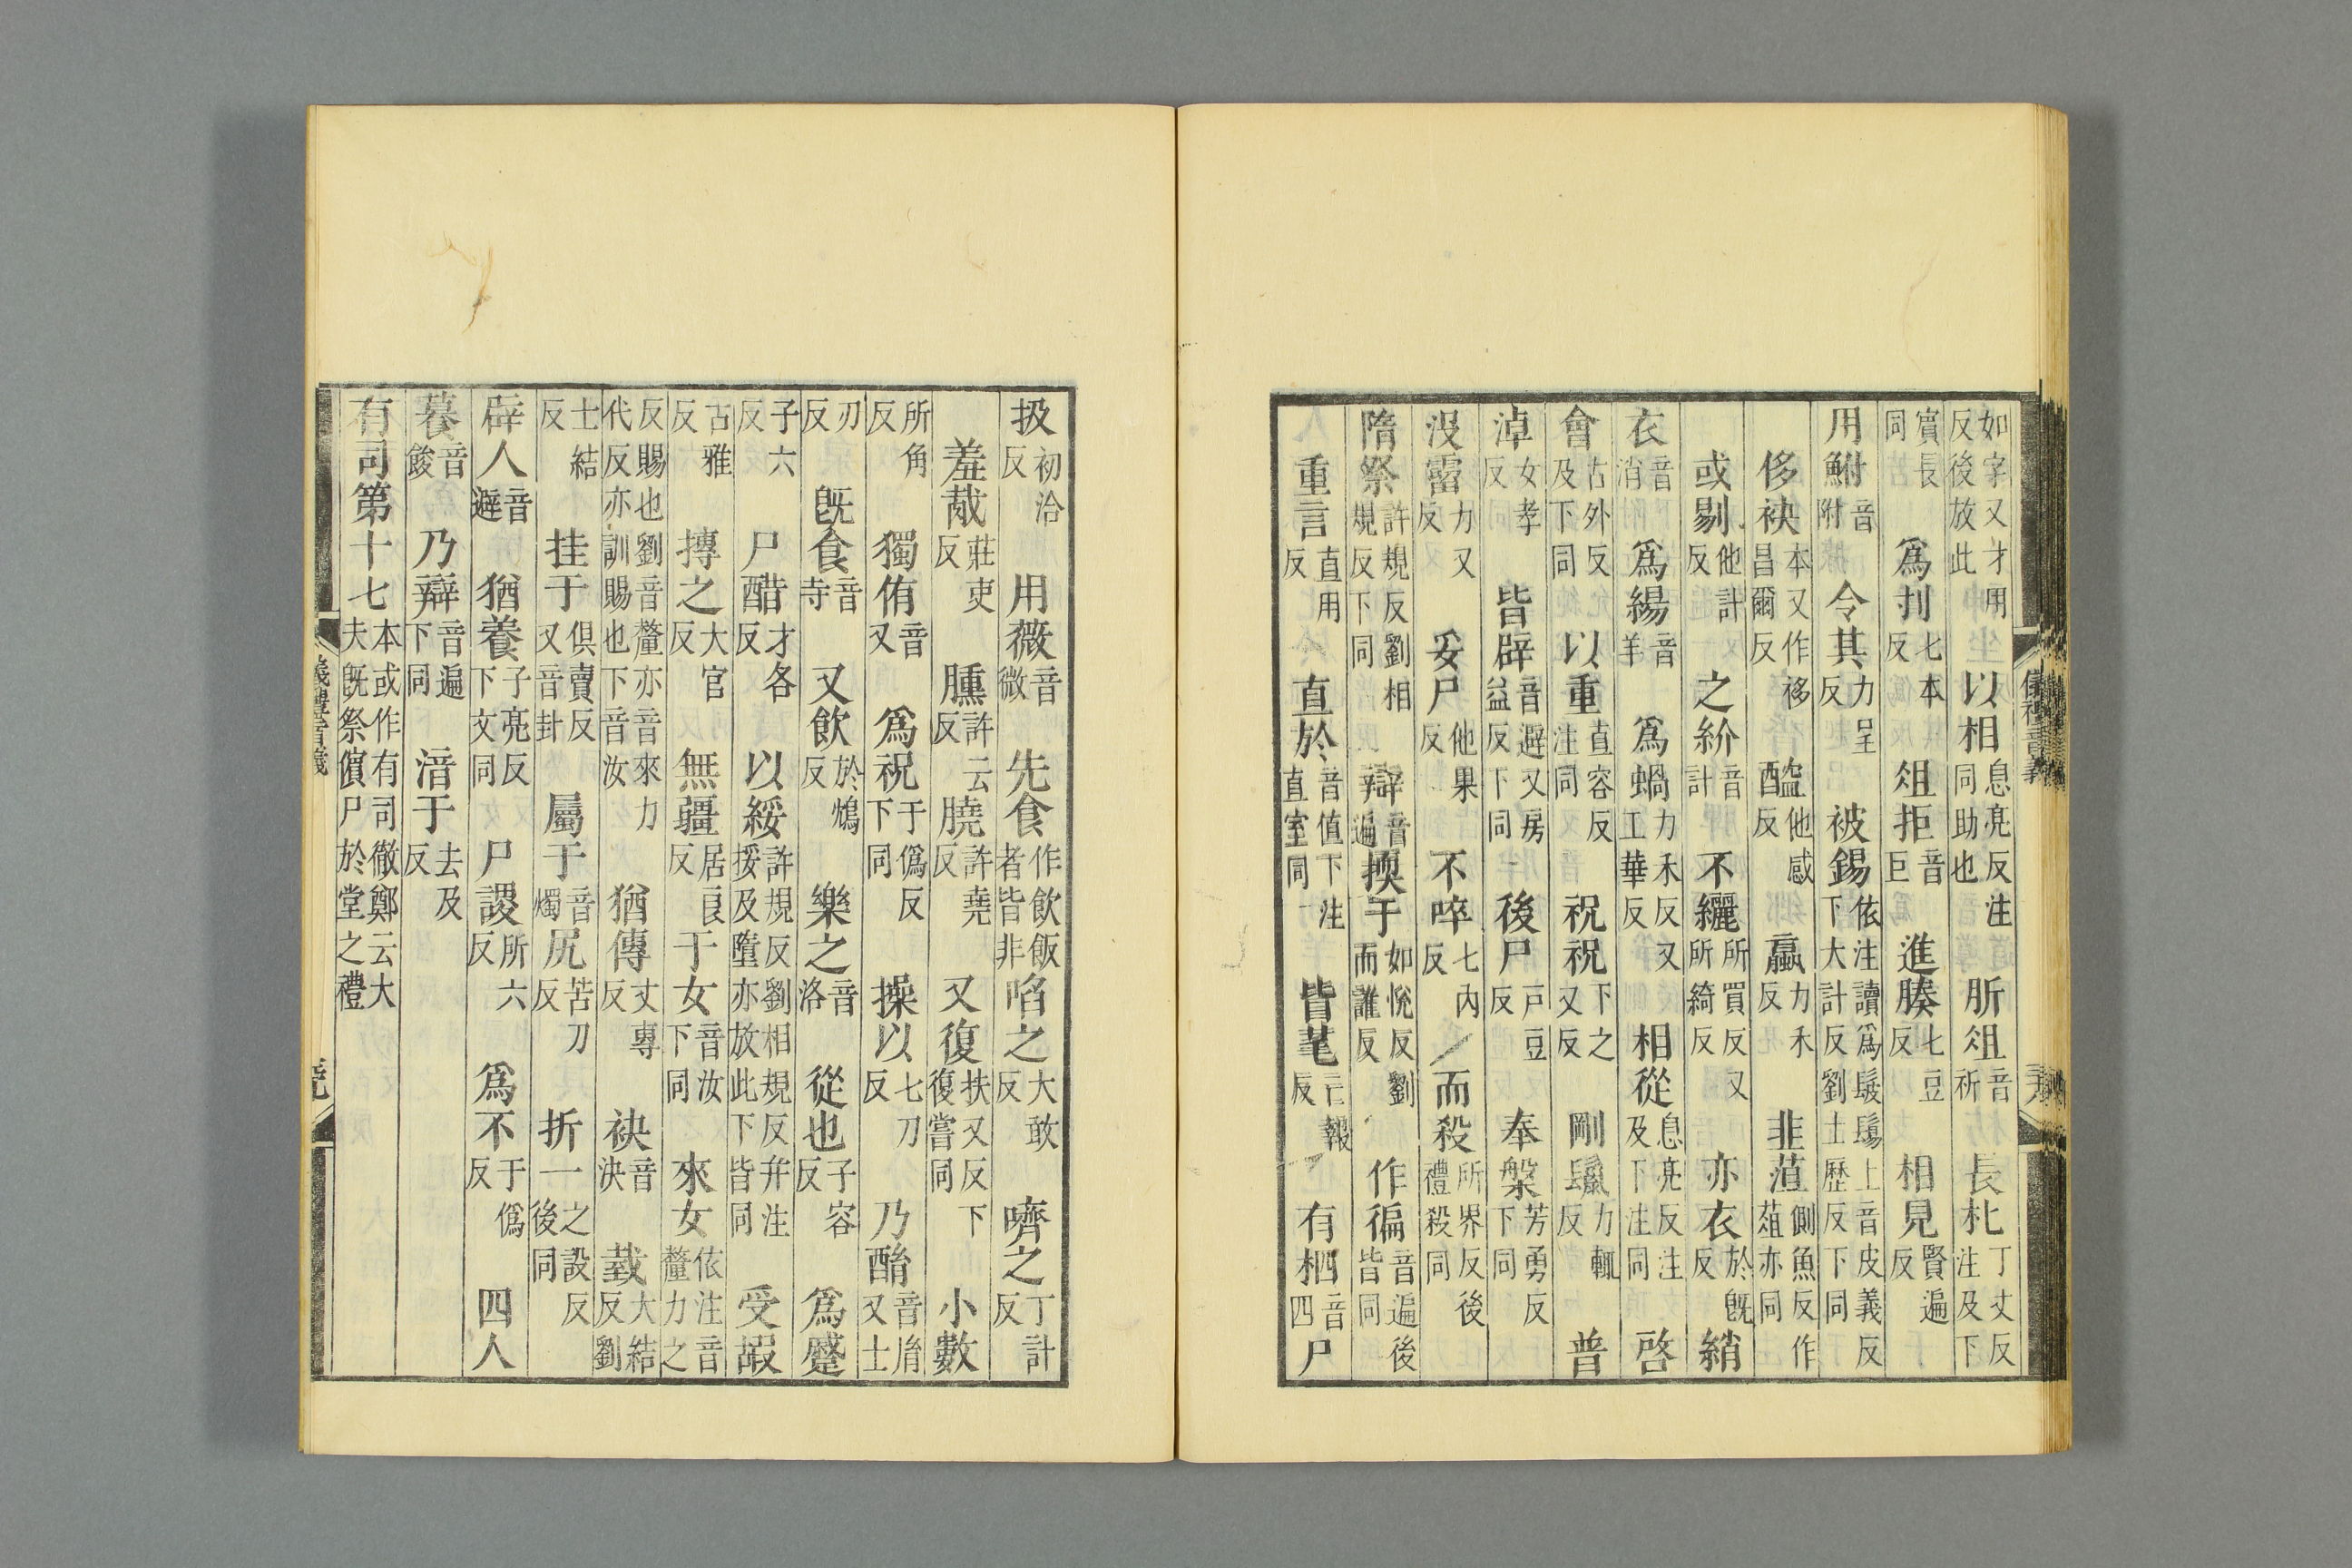 如字又才用反後放此 以相息亮反注同助也 肵俎音祈 長朼丁丈反注及下
賓長同 爲刌七本反 俎拒音巨 進腠七豆反 相見賢遍反
用鮒音附 令其力呈反 被錫依注讀爲髲鬄上音皮義反下大計反劉土歷反下同
侈袂本又作移昌爾反 醓他感反 蠃力禾反 韭菹側魚反作葅亦同
或剔他計反 之紒音計 不纚所買反又所綺反 亦衣於旣反 綃
衣音消 爲緆音羊 爲蝸力禾反又工華反 相從息亮反注及下注同 啓
會古外反及下同 以重直容反注同 祝祝下之又反 剛鬛力輒反 普
淖女孝反 皆辟音避又房益反下同 後尸戸豆反 奉槃芳勇反下同
沒霤力又反 妥尸他果反 不啐七內反 而殺所界反後禮殺同
隋祭許規反劉相規反下同 辯音遍 擩于如悅反劉而誰反 作徧音遍後皆同
重言直用反 直於音值下注直室同 皆芼亡報反 有柶音四 尸
扱初洽反 用薇音微 先食作飮飯者皆非 啗之大敢反 嚌之丁計反
羞胾莊吏反 臐許云反 膮許堯反 又復扶又反下復嘗同 小數
所角反 獨侑音又 爲祝于僞反下同 操以七刀反 乃酳音胤又士
刃反 旣食音寺 又飮於鴆反 樂之音洛 從也子容反 爲蹙
子六反 尸醋才各反 以綏許規反劉相規反幷注挼及墮亦放此下皆同 受嘏
古雅反 摶之大官反 無疆居良反 于女音汝下同 來女依注音釐力之
反賜也劉音釐亦音來力代反亦訓賜也下音汝 猶傳丈專反 袂音決 臷大結反劉
士結反 挂于俱賣反又音卦 屬于音燭 尻苦刀反 折一之設反後同
辟人音避 猶養子亮反下文同 尸謖所六反 爲不于僞反 四人
䭕音餕 乃辯音遍下同 湆于去及反
有司第十七本或作有司徹鄭云大夫旣祭儐尸於堂之禮